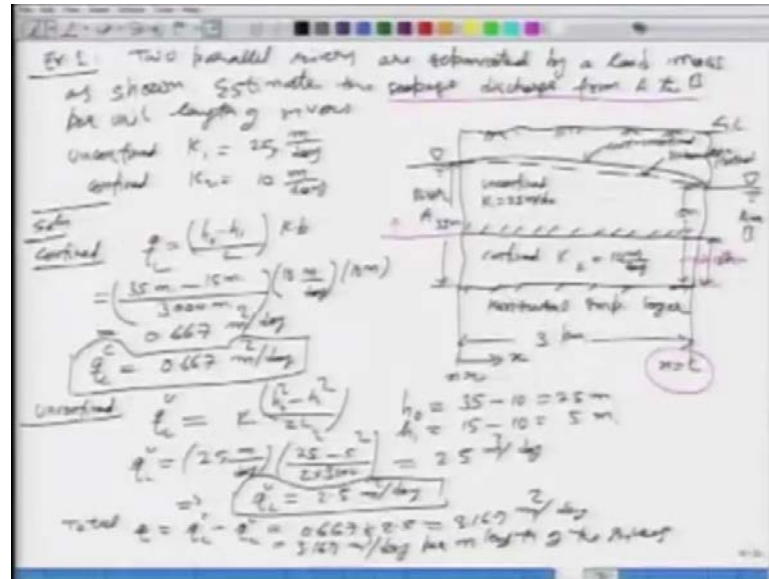 Ex 1: Two parallel rivers are separated by a land mass
as shown. Estimate the seepage discharge from A to B
per unit length of rivers
unconfined K₁ = 25 m/day
confined K₂ = 10 m/day
Soln
Confined q = (h₀-h₁/L) K b
= (35 m - 15 m / 3000 m) (10 m/day) (10 m)
= 0.667 m²/day
q = 0.667 m²/day
Unconfined q = K (h₀² - h² / 2L)
h₀ = 35 - 10 = 25 m
h₁ = 15 - 10 = 5 m
q = (25 m/day) (25² - 5² / ) = 2.5 m²/day
=> q = 2.5 m²/day
Total q = 0.667 + 2.5 = 3.167 m²/day
= 3.167 m³/day per m length of the rivers
G.L
River
A
unconfined
K₁ = 25 m/day
River
B
confined K₂ = 10 m/day
Horizontal imp layer
3 km
x
x=L